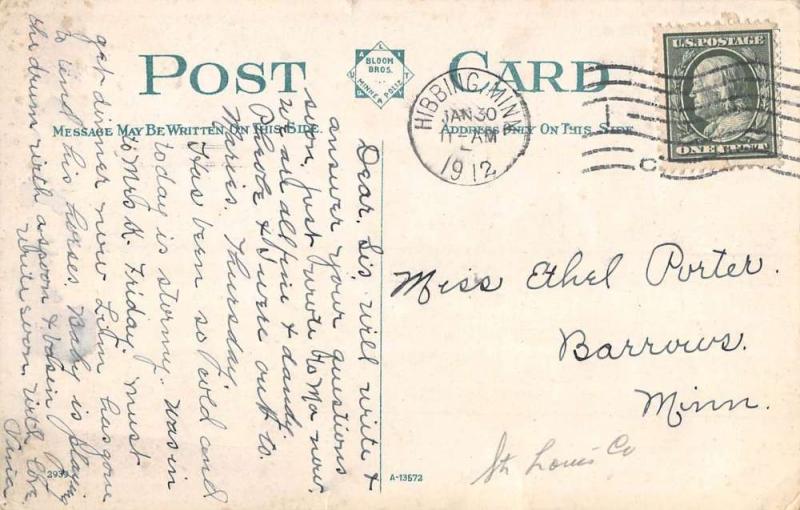 POST CARD
BLOOM BROS.
MINNEAPOLIS
MESSAGE MAY BE WRITTEN ON THIS SIDE.
ADDRESS ONLY ON THIS SIDE
HIBBING, MINN.
JAN 30
11-AM
1912
U.S. POSTAGE
ONE CENT
Dear Sis will write &
answer your questions
soon, just wrote to Ma now
we are all fine & dandy.
Phoebe & I were out to
Maries. Thursday.
Has been so cold and
today is stormy. Was in
to Mrs K. Friday, must
get dinner now has gone
to tend his horses. Baby is playing
the drum with a spoon & basin
Write soon, with love
Miss Ethel Porter.
Barrows.
Minn.
St Louis Co
2939
A-13572